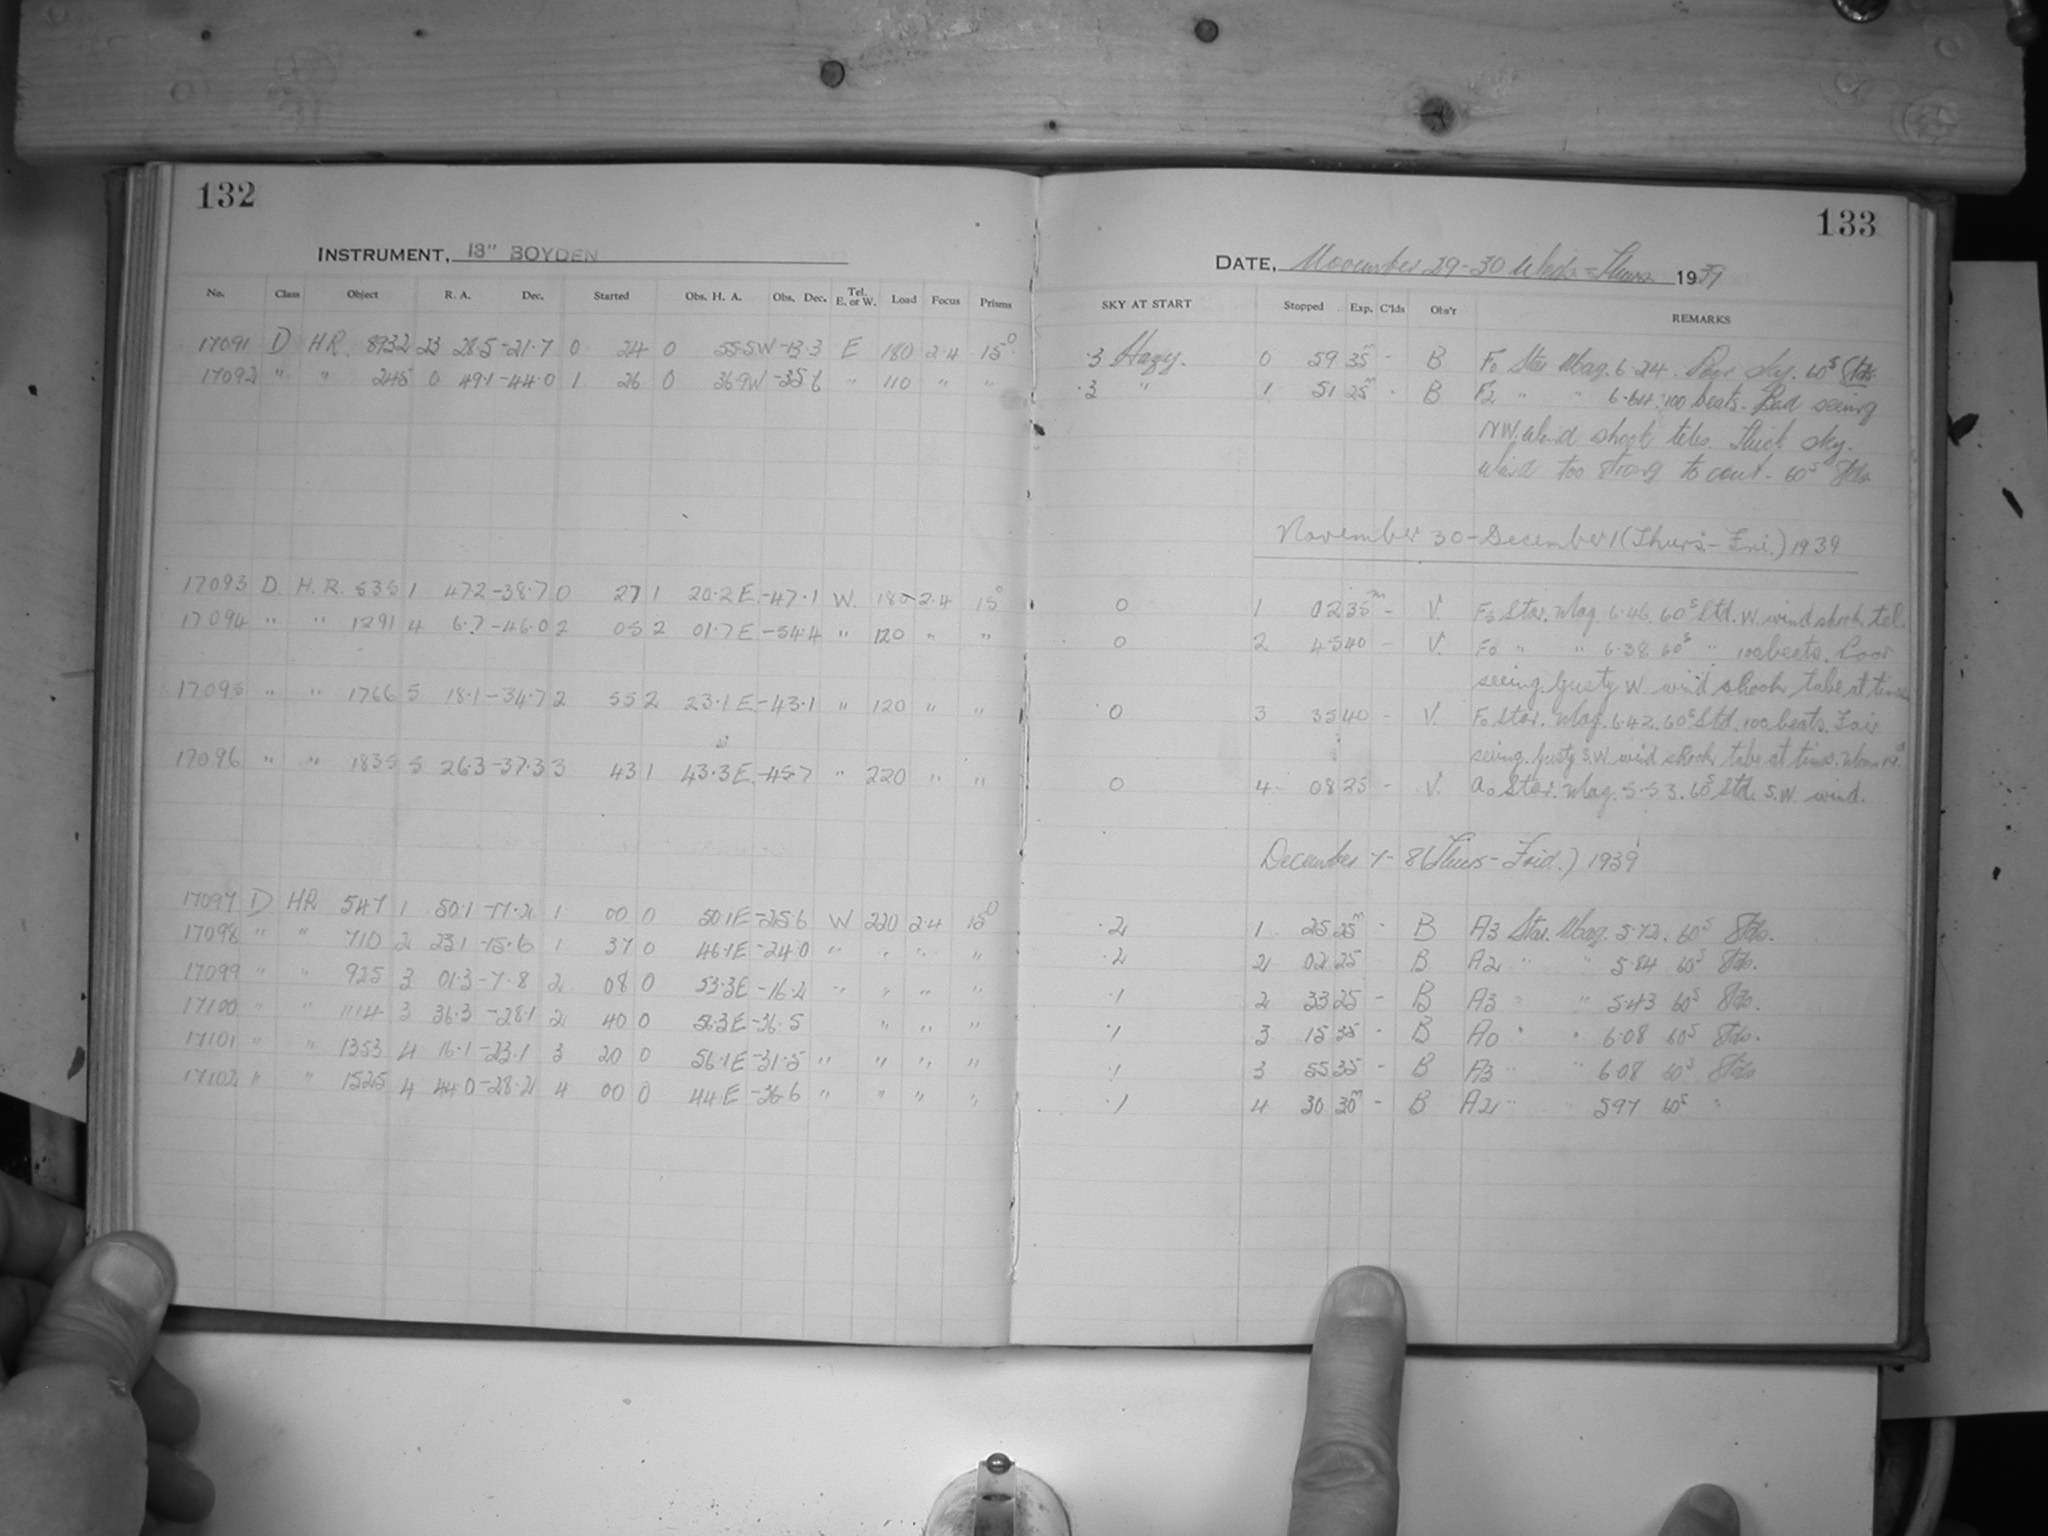 132
INSTRUMENT, 13" BOYDEN
No. Class Object R. A. Dec. Started Obs. H. A. Obs. Dec. Tel. E. or W. Load Focus Prisms
17091 D HR 8932 23 28.5 -21.7 0 24 0 55.5W -13.3 E 180 2.4 15°
17092 " " 245 0 49.1 -44.0 1 26 0 36.9W -35.6 " 110 " "
17093 D. H.R. 535 1 47.2 -38.7 0 27 1 20.2 E. -47.1 W. 180 2.4 15°
17094 " " 1291 4 6.7 -46.0 2 05 2 01.7 E -54.4 " 120 " "
17095 " " 1766 5 18.1 -34.7 2 55 2 23.1 E. -43.1 " 120 " "
17096 " " 1835 5 26.3 -37.3 3 43 1 43.3 E. -45.7 " 220 " "
17097 D HR 547 1 50.1 -17.2 1 00 0 50.1E -25.6 W 220 2.4 15°
17098 " " 710 2 23.1 -15.6 1 37 0 46.1E -24.0 " " " "
17099 " " 925 3 01.3 -7.8 2 08 0 53.3E -16.2 " " " "
17100 " " 1114 3 36.3 -28.1 2 40 0 56.3E -36.5 " " "
17101 " " 1353 4 16.1 -23.1 3 20 0 56.1E -31.5 " " " "
17102 " " 1525 4 44.0 -28.2 4 00 0 44.E -36.6 " " " "
133
DATE, November 29-30 Weds-Thurs 1939
SKY AT START Stopped Exp. C'lds Obs'r REMARKS
.3 Hazy. 0 59 35m - B F0 Star Mag. 6.24. Poor sky. 60s Stds.
.3 " 1 51 25m - B F2 " " 6.64. 100 beats. Bad seeing
N.W. wind shook teles. Thick sky.
Wind too strong to cont. 60s Stds
November 30-December 1 (Thurs.-Fri.) 1939
0 1 02 35m - V. F5 Star. Mag. 6.46. 60s Std. W. wind shook tel.
0 2 45 40 - V. F0 " " 6.38 60s " 100 beats. Poor
seeing. Gusty W. wind shook tube at times
0 3 35 40 - V. F0 Star. Mag. 6.42. 60s Std. 100 beats. Fair
seeing. Gusty S.W. wind shook tube at times.
0 4 08 25 - V. A0 Star. Mag. 5.53. 60s Std. S.W. wind.
December 7-8 (Thurs-Frid.) 1939
.2 1 25 25m - B A3 Star. Mag. 5.72. 60s Stds.
.2 2 02 25 B A2 " " 5.84 60s Stds.
.1 2 33 25 - B A3 " " 5.43 60s Stds.
.1 3 15 35 - B A0 " " 6.08 60s Stds.
.1 3 55 35 - B A3 " " 6.08 60s Stds
.1 4 30 30m - B A2 " 5.97 60s "